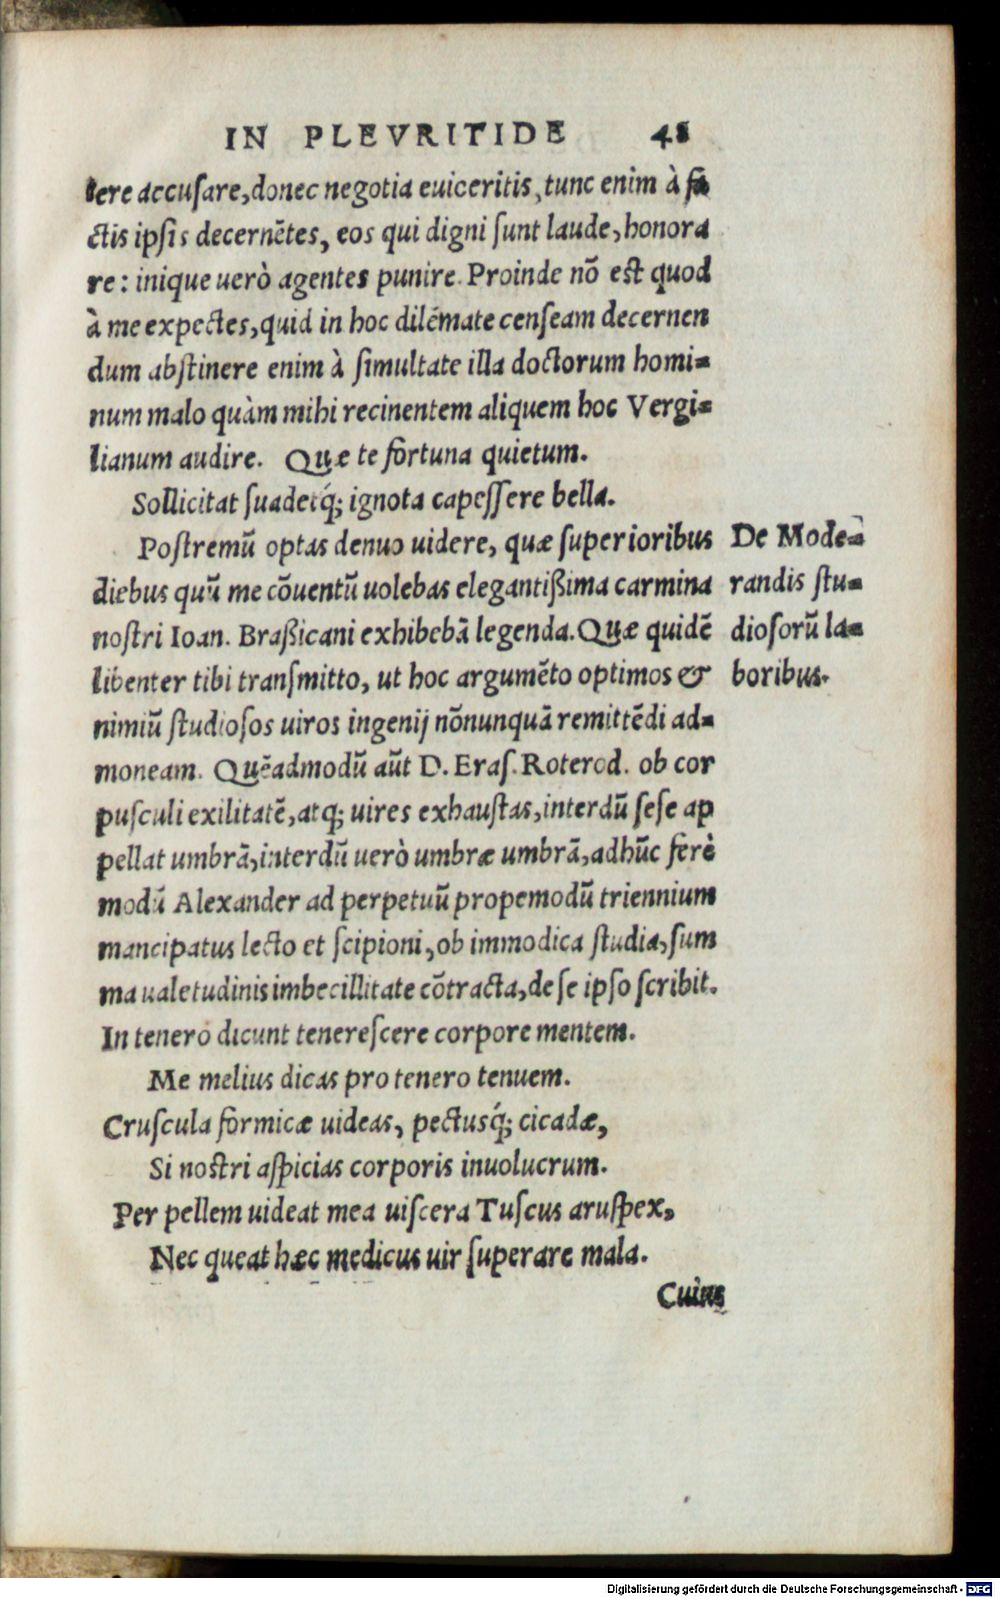 IN PLEVRITIDE 48
tere accusare, donec negotia euiceritis, tunc enim à fa
ctis ipsis decernētes, eos qui digni sunt laude, honora
re: inique uerò agentes punire. Proinde nō est quod
à me expectes, quid in hoc dilēmate censeam decernen
dum abstinere enim à simultate illa doctorum homi=
num malo quàm mihi recinentem aliquem hoc Vergi=
lianum audire. Quæ te fortuna quietum.
Sollicitat suadetq́; ignota capessere bella.
Postremū optas denuo uidere, quæ superioribus
diebus quū me cōuentū uolebas elegantißima carmina
nostri Ioan. Braßicani exhibebā legenda. Quæ quidē
libenter tibi transmitto, ut hoc argumēto optimos &
nimiū studiosos uiros ingenij nōnunquā remittēdi ad=
moneam. Quēadmodū aūt D. Eras. Roterod. ob cor
pusculi exilitatē, atq; uires exhaustas, interdū sese ap
pellat umbrā, interdū uerò umbræ umbrā, adhūc ferè
modū Alexander ad perpetuū propemodū triennium
mancipatus lecto et scipioni, ob immodica studia, sum
ma ualetudinis imbecillitate cōtracta, de se ipso scribit.
In tenero dicunt tenerescere corpore mentem.
Me melius dicas pro tenero tenuem.
Cruscula formicæ uideas, pectusq́; cicadæ,
Si nostri aspicias corporis inuolucrum.
Per pellem uideat mea uiscera Tuscus aruspex,
Nec queat hæc medicus uir superare mala.
Cuius
De Mode=
randis stu=
diosorū la=
boribus.
Digitalisierung gefördert durch die Deutsche Forschungsgemeinschaft - DFG